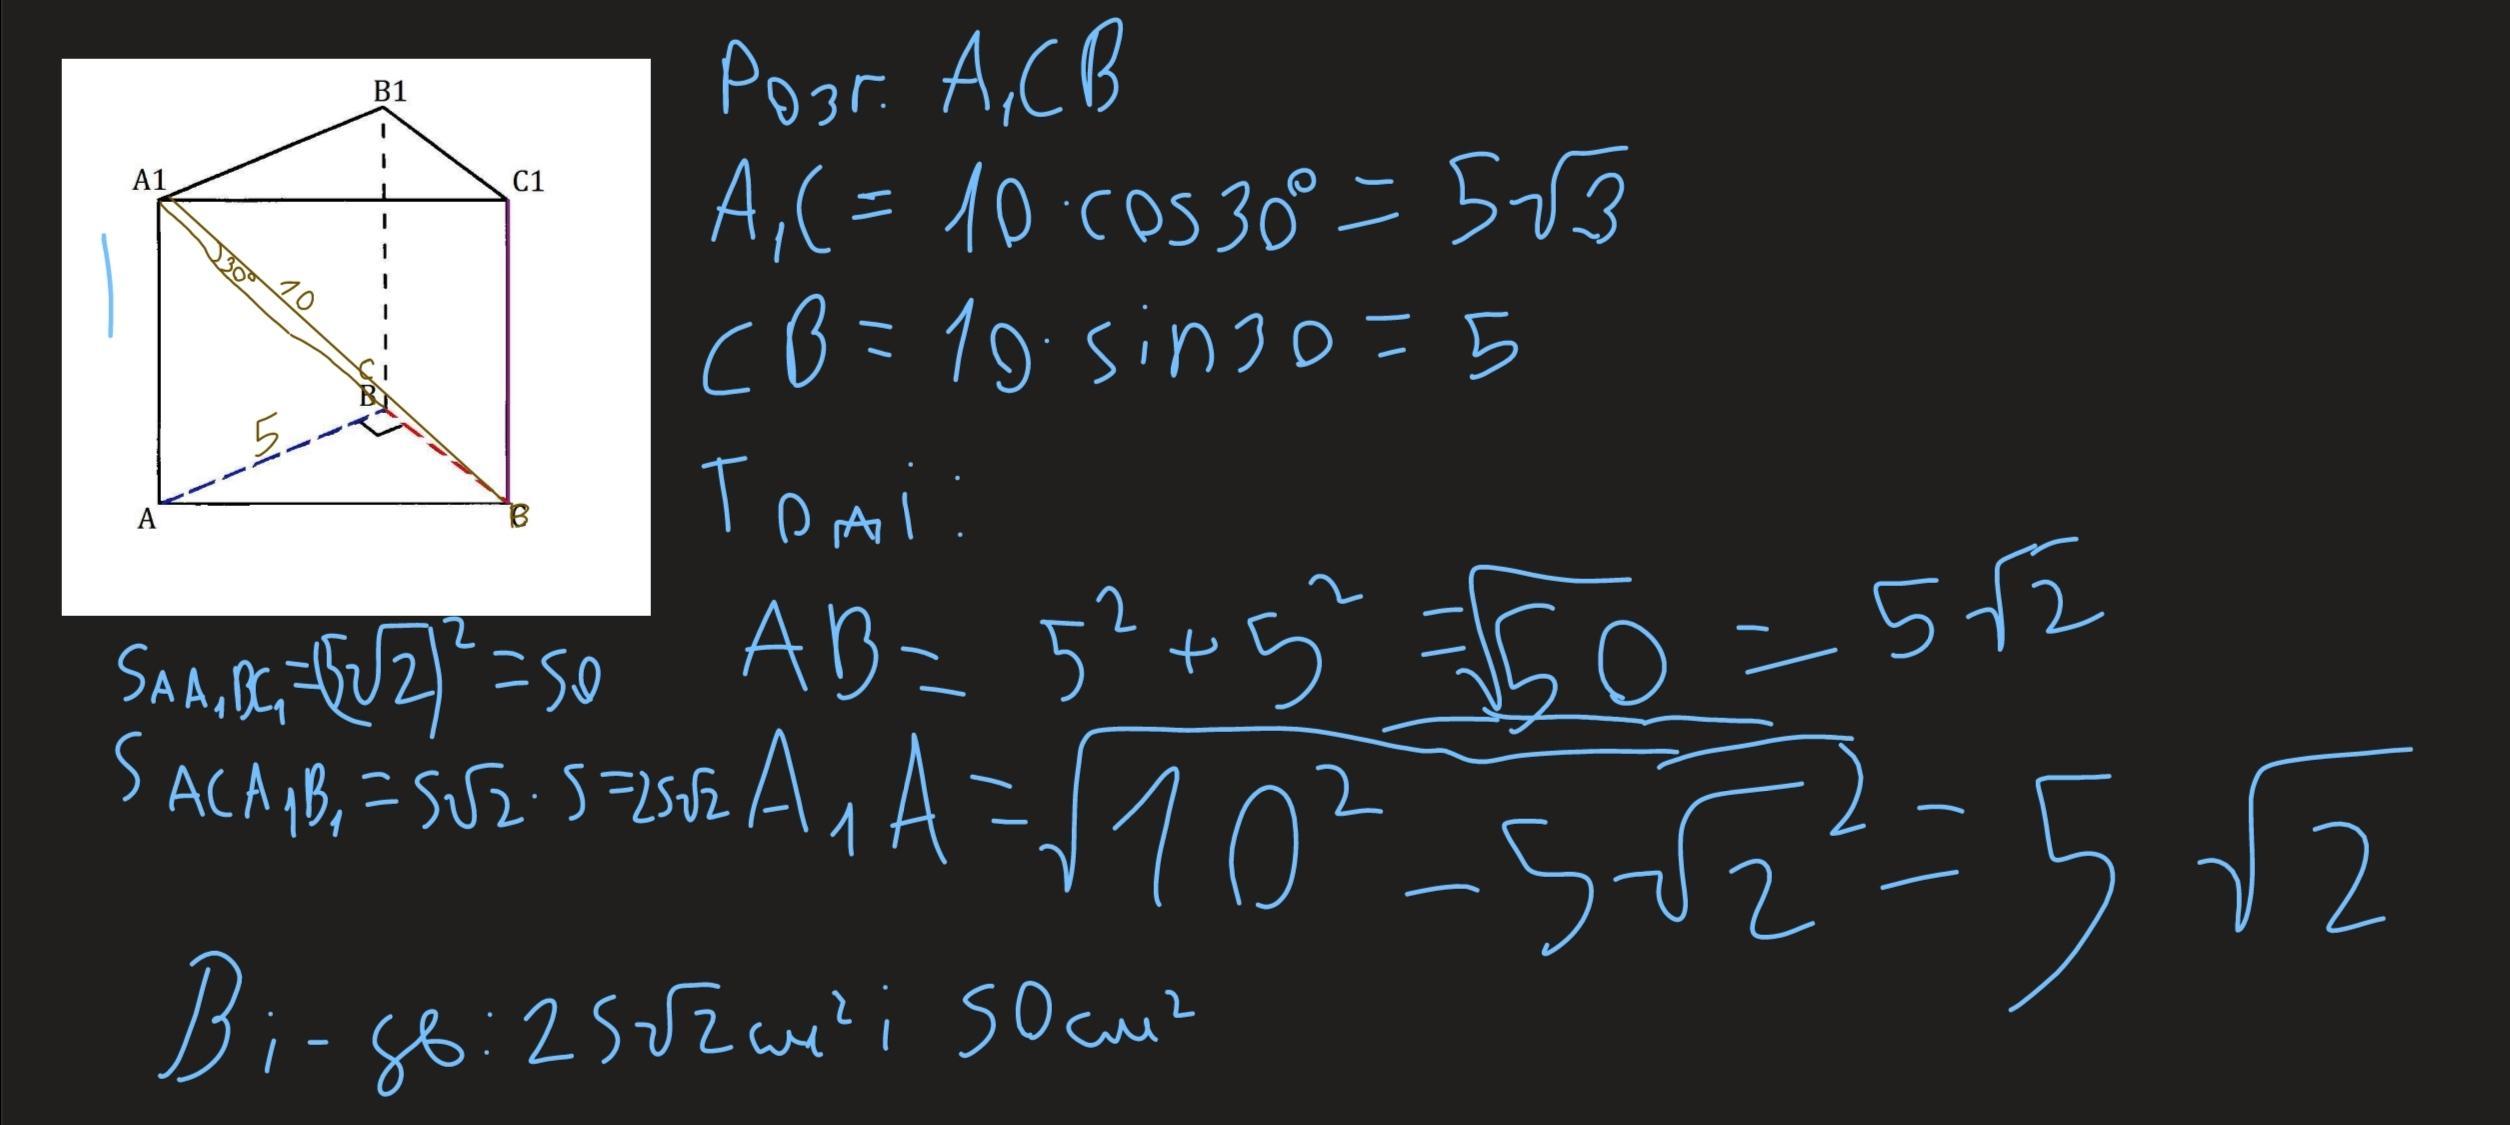 B1
A1
C1
30°
10
C
B
5
A
B
Розг. A₁CB
A₁C = 10 · cos30° = 5√3
CB = 10 · sin30 = 5
Тоді:
AB = 5² + 5² = √50 = 5√2
A₁A = √10² - 5√2² = 5√2
SAA₁BC₁ = (5√2)² = 50
SACA₁B₁ = 5√2 · 5 = 25√2
Ві-дь: 25√2 см² і 50 см²